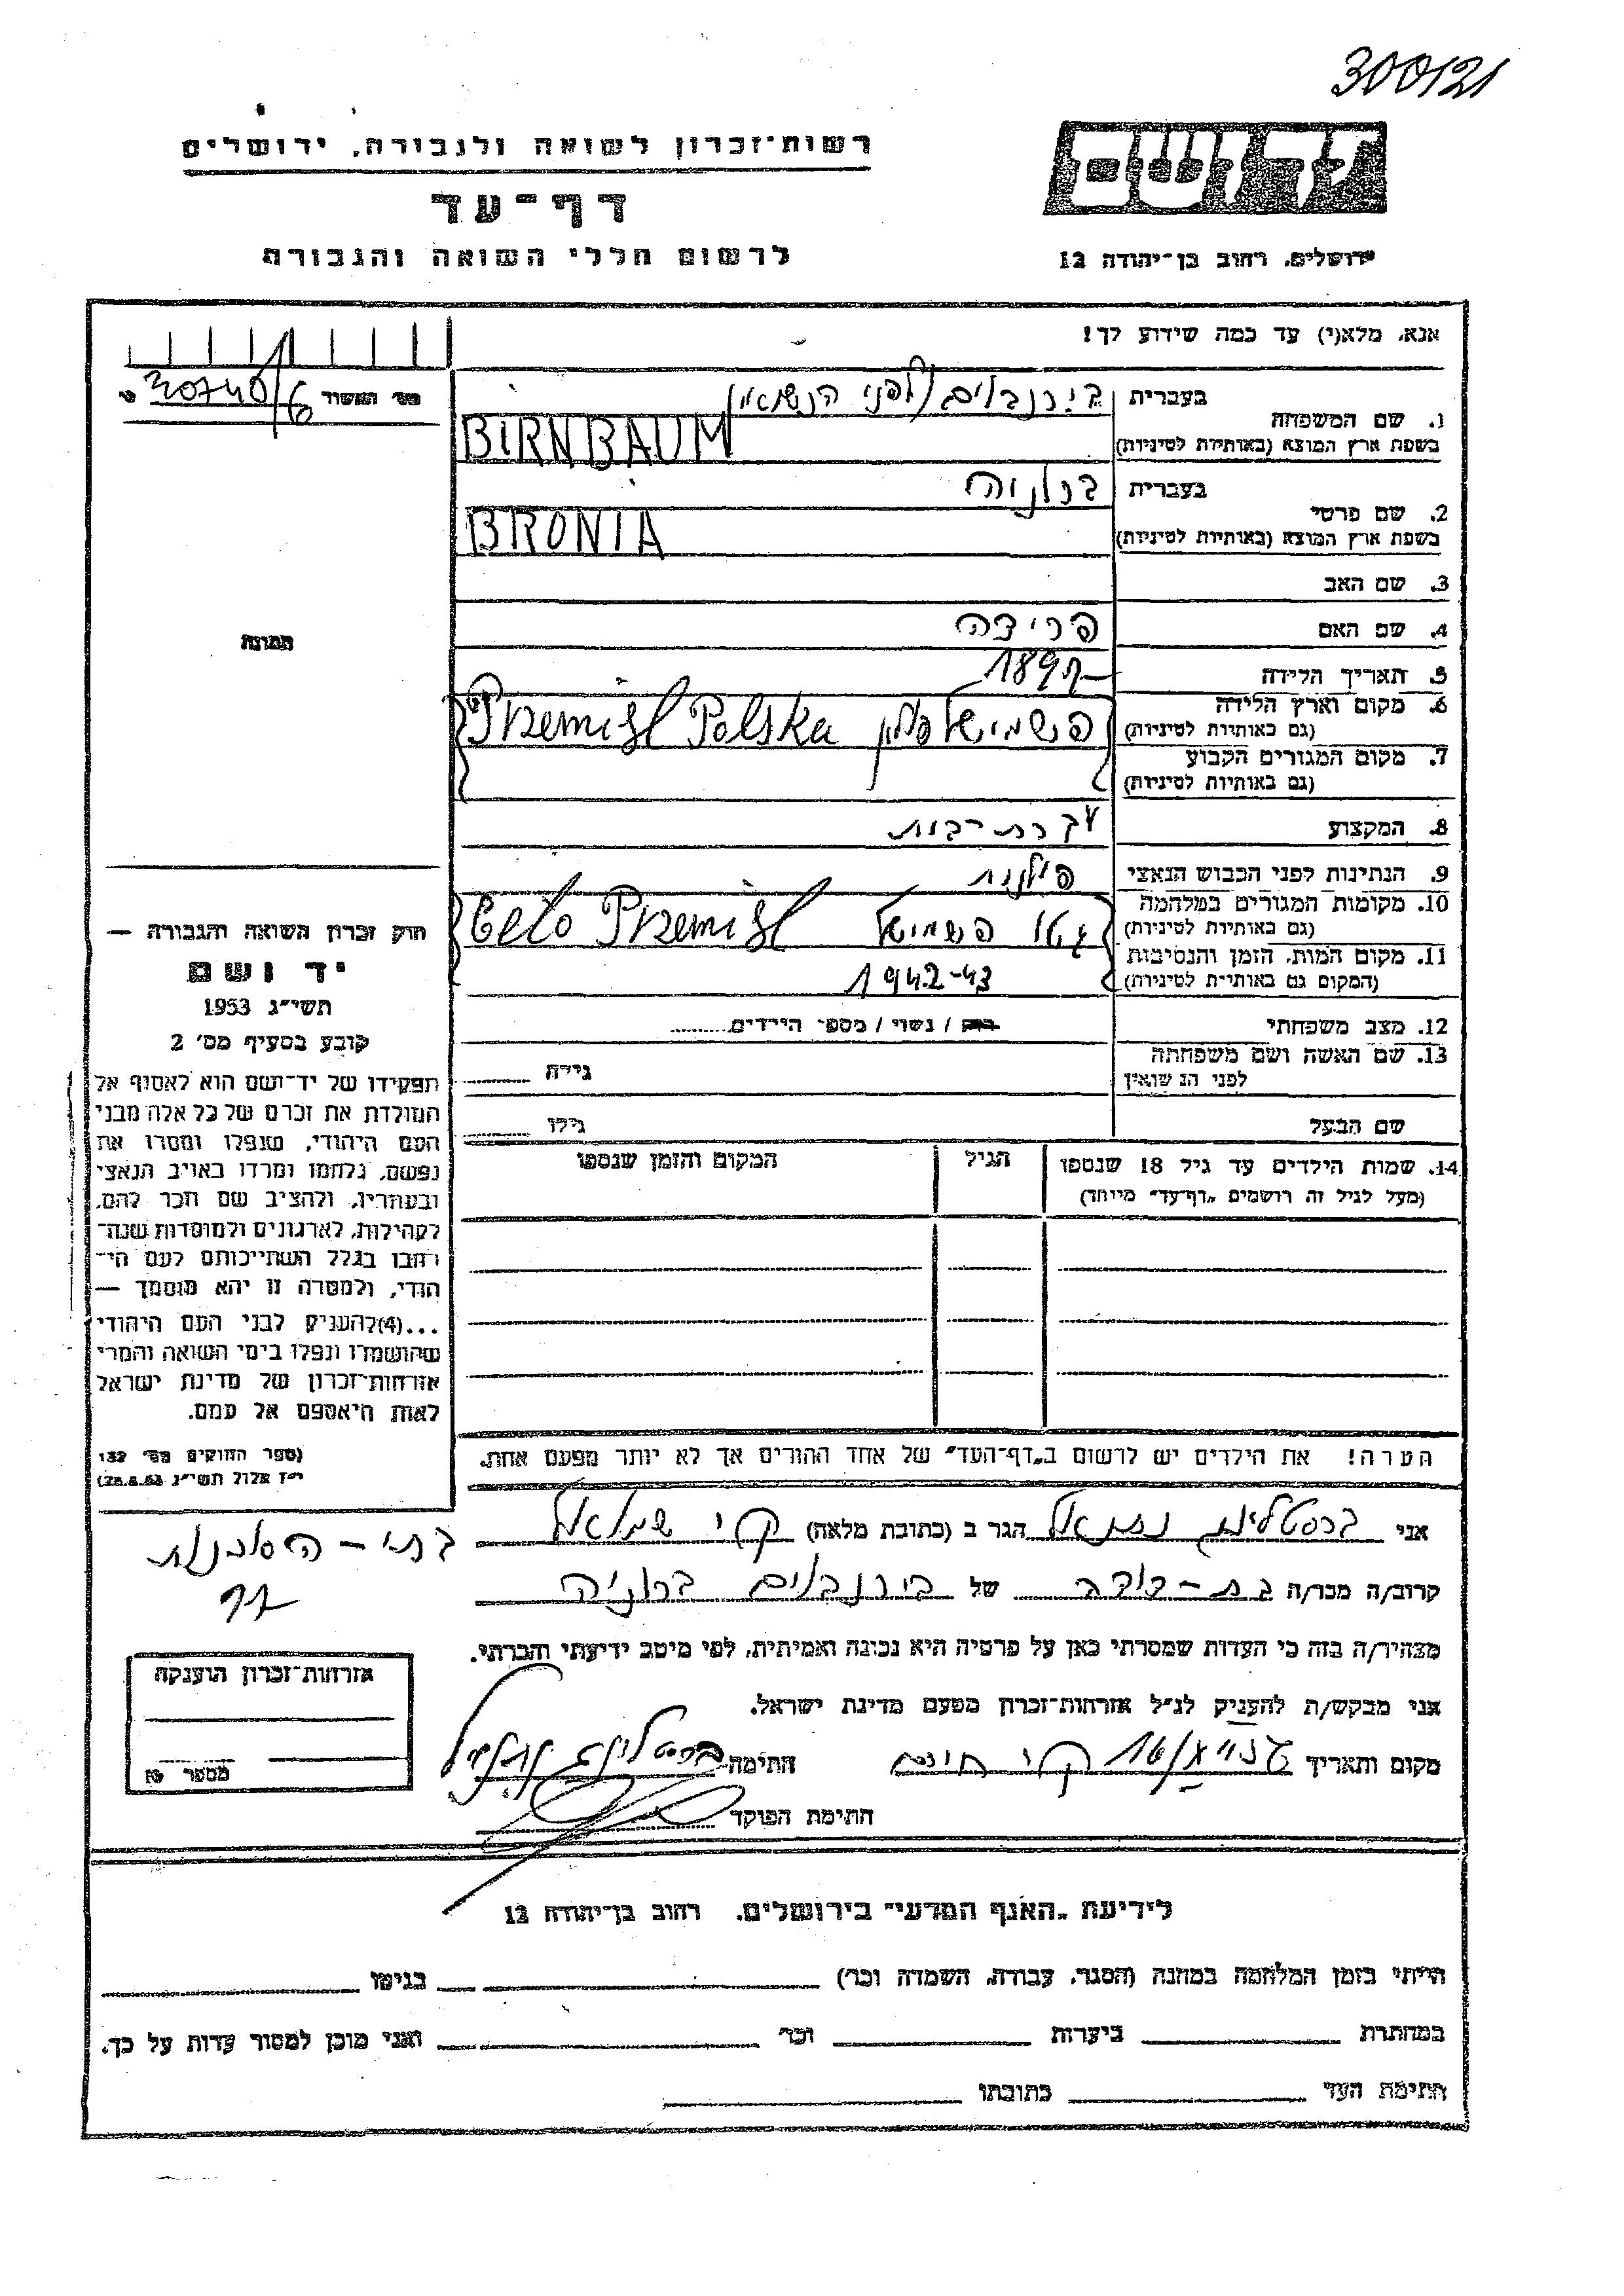 300121
רשות־זכרון לשואה ולגבורה, ירושלים
דף־עד
לרשום חללי השואה והגבורה
ידושם
ירושלים, רחוב בן־יהודה 12
אנא, מלא(י) עד כמה שידוע לך!
1. שם המשפחה
בעברית בירנבוים (לפני הנשואין
בשפת ארץ המוצא (באותיות לטיניות) BIRNBAUM
2. שם פרטי
בעברית ברוניה
בשפת ארץ המוצא (באותיות לטיניות) BRONIA
3. שם האב
4. שם האם פרידה
5. תאריך הלידה 1897
6. מקום וארץ הלידה
(גם באותיות לטיניות) פשמישל פולין Przemisl Polska
7. מקום המגורים הקבוע
(גם באותיות לטיניות)
8. המקצוע עקרת בית
9. הנתינות לפני הכבוש הנאצי פולנית
10. מקומות המגורים במלחמה
(גם באותיות לטיניות) גטו פשמישל Geto Przemisl
11. מקום המות, הזמן והנסיבות
(המקום גם באותיות לטיניות) 1942-43
12. מצב משפחתי רווק / נשוי / מספר הילדים
13. שם האשה ושם משפחתה
לפני הנשואין גילה
שם הבעל גילו
14. שמות הילדים עד גיל 18 שנספו הגיל המקום והזמן שנספו
(מעל לגיל זה רושמים „דף־עד" מיוחד)
הערה! את הילדים יש לרשום ב„דף־העד" של אחד ההורים אך לא יותר מפעם אחת.
מס׳ האשור
תמונה
חוק זכרון השואה והגבורה —
יד ושם
תשי״ג 1953
קובע בסעיף מס׳ 2
תפקידו של יד־ושם הוא לאסוף אל
המולדת את זכרם של כל אלה מבני
העם היהודי, שנפלו ומסרו את
נפשם, נלחמו ומרדו באויב הנאצי
ובעוזריו, ולהציב שם וזכר להם,
לקהילות, לארגונים ולמוסדות שנח־
רבו בגלל השתייכותם לעם הי־
הודי, ולמטרה זו יהא מוסמך —
...(4)להעניק לבני העם היהודי
שהושמדו ונפלו בימי השואה והמרי
אזרחות־זכרון של מדינת ישראל
לאות היאספם אל עמם.
(ספר החוקים מס׳ 132
י״ז אלול תשי״ג 28.8.53)
אני ברסטלינג נתנאל הגר ב (כתובת מלאה) ק׳ שמואל
קרוב/ה מכר/ה בת-דודה של בירנבוים ברוניה
מצהיר/ה בזה כי העדות שמסרתי כאן על פרטיה היא נכונה ואמיתית, לפי מיטב ידיעתי והכרתי.
אני מבקש/ת להעניק לנ״ל אזרחות־זכרון מטעם מדינת ישראל.
מקום ותאריך חתימה
חתימת הפוקד
אזרחות־זכרון הוענקה
מספר
לידיעת „האגף המדעי" בירושלים, רחוב בן־יהודה 12
הייתי בזמן המלחמה במחנה (הסגר, עבודה, השמדה וכו׳) בגיטו
במחתרת ביערות וכו׳ ואני מוכן למסור עדות על כך.
חתימת העד כתובתו